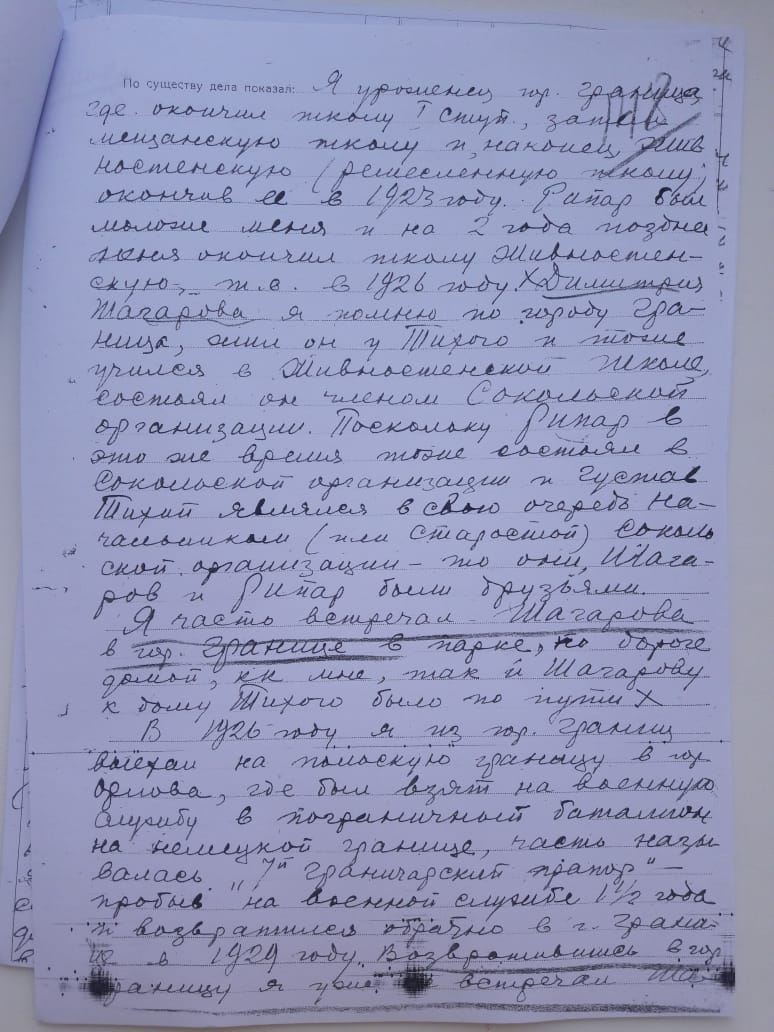 По существу дела показал: Я уроженец гор. Граница
где окончил школу I ступ., затем
мещанскую школу и, наконец, жив
ностенскую (ремесленную школу,
окончив ее в 1923 году. Рипар был
моложе меня и на 2 года позднее
меня окончил школу Живностен-
скую, т.е. в 1926 году. X Димитрия
Шагарова я помню по городу Гра-
ница, жил он у Тихого и тоже
учился в Живностенской школе,
состоял он членом Сокольской
организации. Поскольку Рипар в
это же время тоже состоял в
Сокольской организации и Густав
Тихий являлся в свою очередь на-
чальником (или старостой) Соколь
ской организации – то они, Шага-
ров и Рипар были друзьями.
Я часто встречал Шагарова
в гор. Границе в парке, по дороге
домой, кк мне, так и Шагарову
к дому Тихого было по пути X
В 1926 году я из гор. Границ
выехал на польскую границу в гор.
Орлова, где был взят на военную
службу в пограничный баталион
на немецкой границе, часть назы-
валась "7й граничарский прапор" –
пробыв на военной службе 1 1/2 года
и возвратился обратно в г. Грани-
це в 1929 году. Возвратившись в гор
Границу я уже встречал Ша-